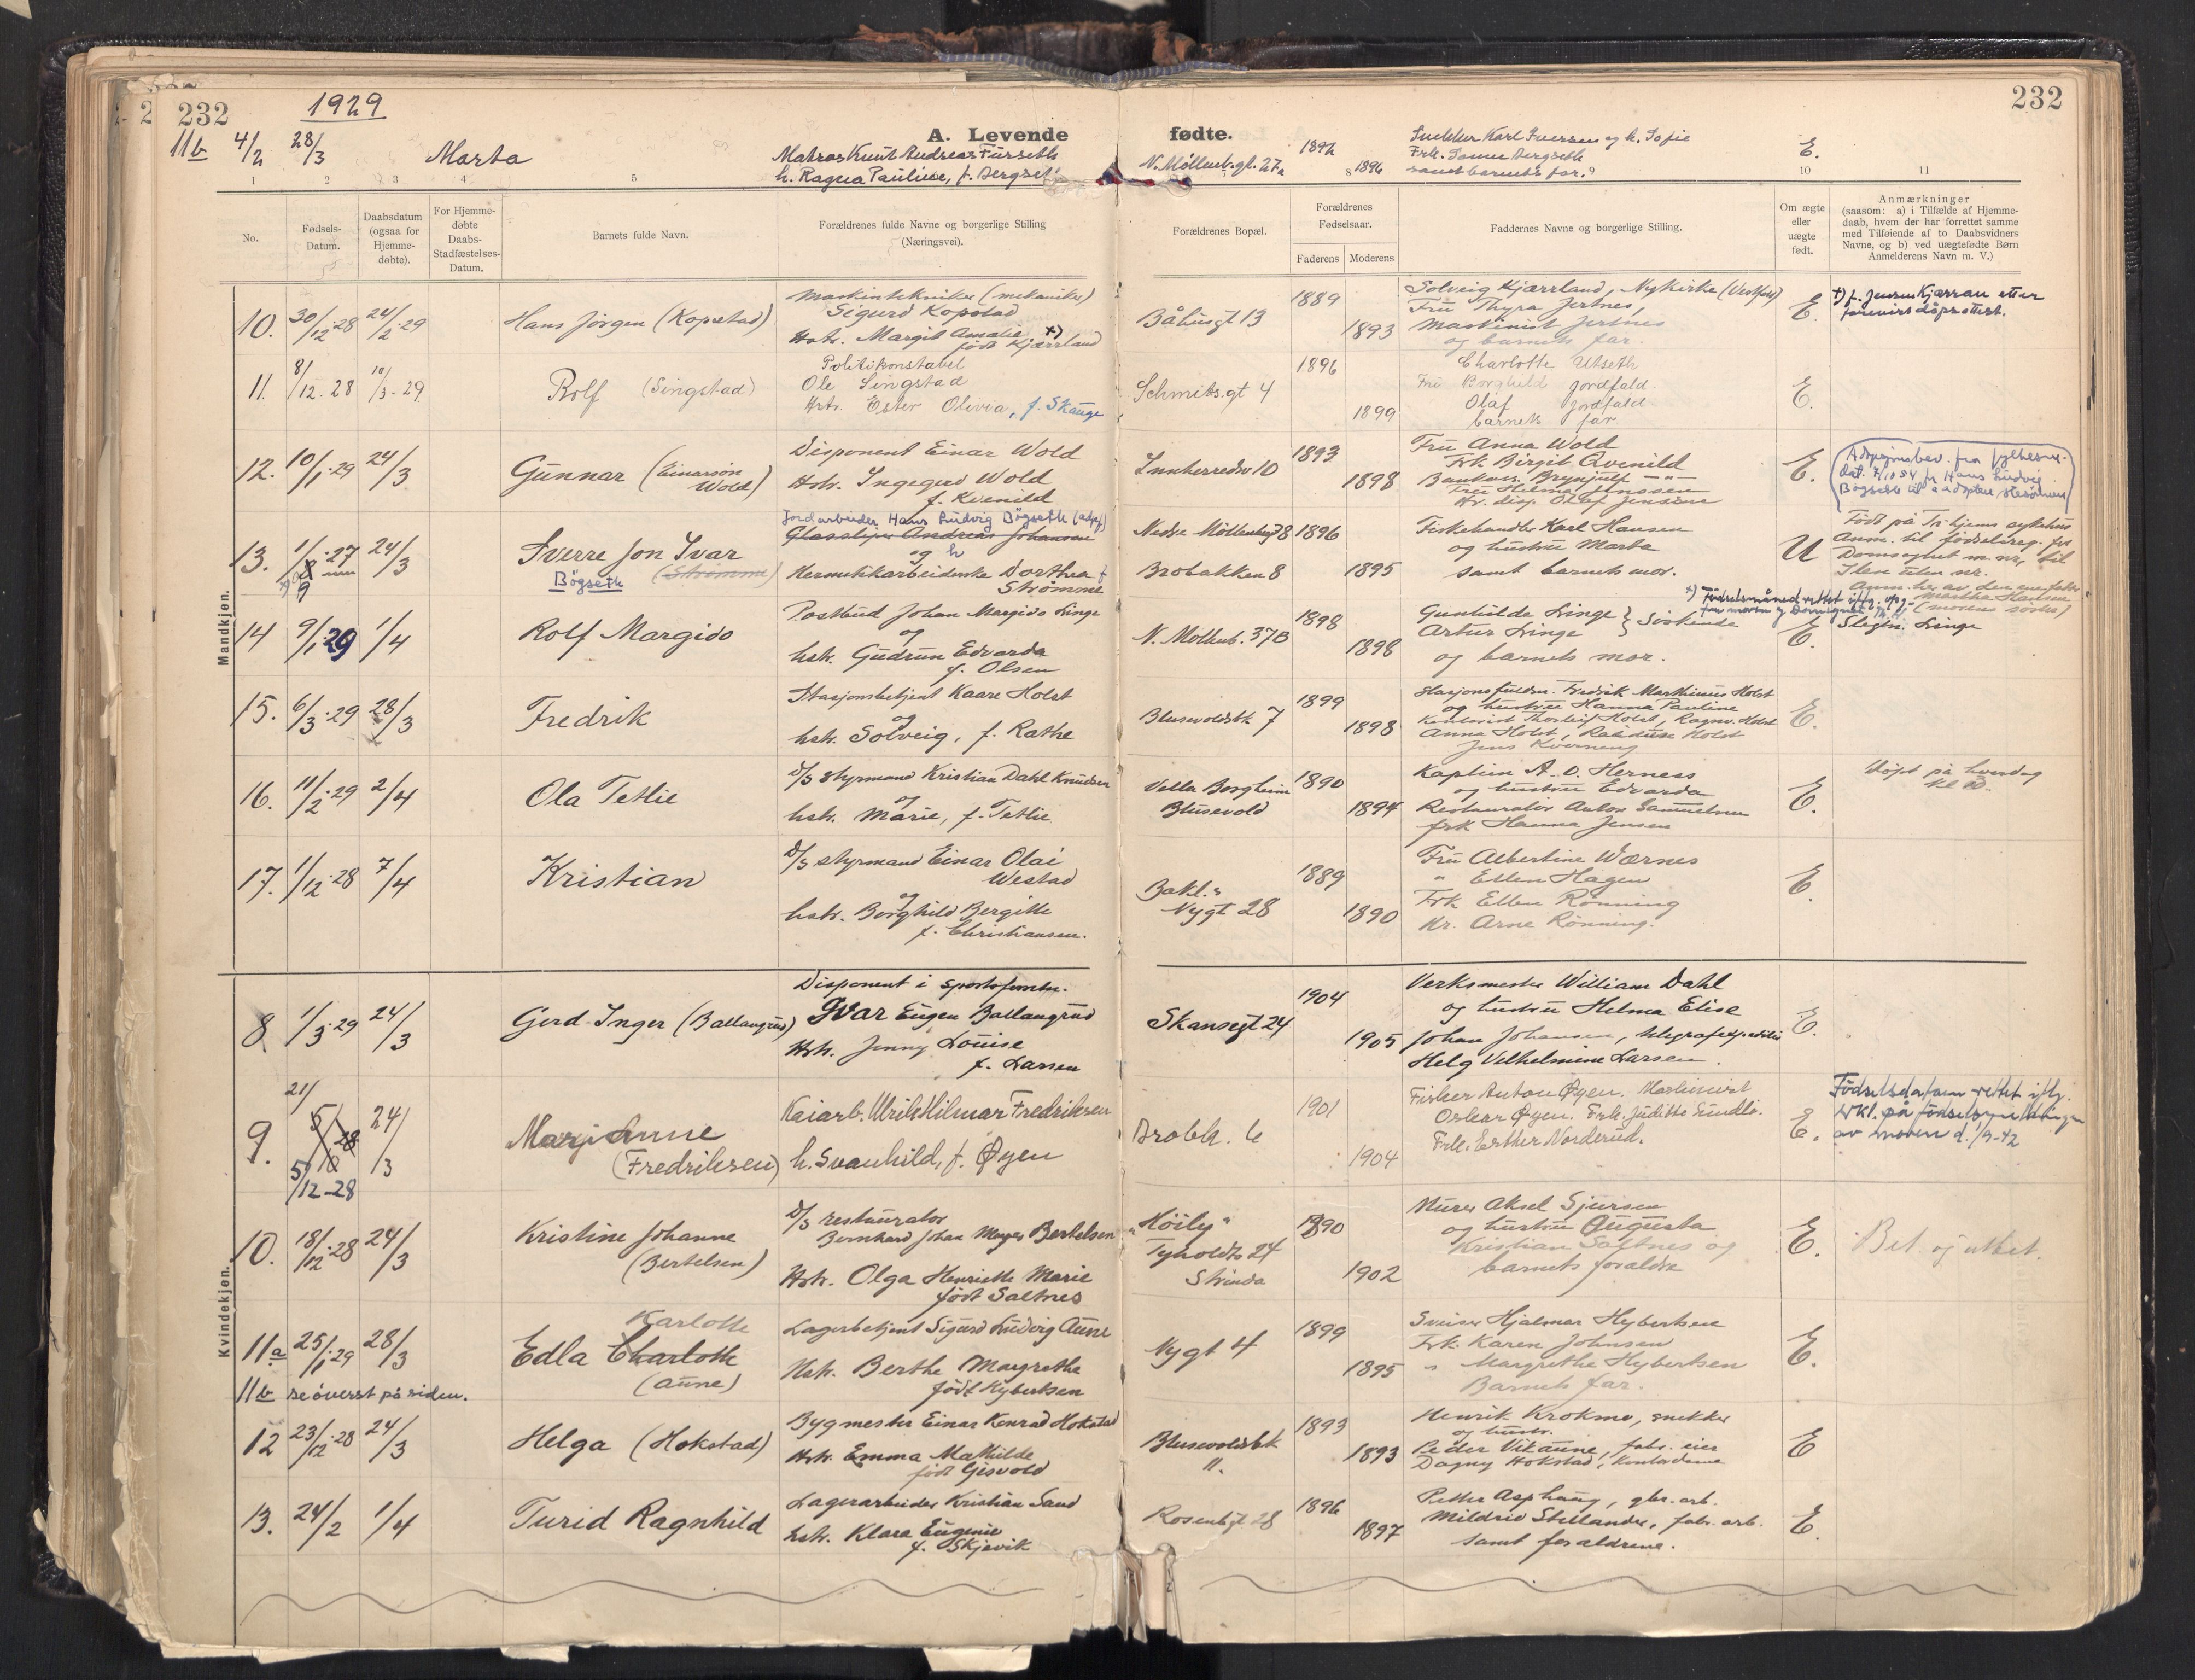 232
1929
232
A. Levende fødte.
11b 4/2 28/3 Marta
Matros Knut Andreas Furseth
h. Ragna Pauline, f. Bergseth
N. Møllenb.gt. 27a
1892
1896
Snekker Karl Iversen og h. Sofie
Frk.
samt barnets far.
E.
1 2 3 4 5 8 10 11
No.
Fødsels-
Datum.
Daabsdatum
(ogsaa for
Hjemme-
døbte).
For Hjemme-
døbte
Daabs-
Stadfæstelses-
Datum.
Barnets fulde Navn.
Forældrenes fulde Navne og borgerlige Stilling
(Næringsvei).
Forældrenes Bopæl.
Forældrenes
Fødselsaar.
Faderens Moderens
Faddernes Navne og borgerlige Stilling.
Om ægte
eller
uægte
født.
Anmærkninger
(saasom: a) i Tilfælde af Hjemme-
daab, hvem der har forrettet samme
med Tilføiende af to Daabsvidners
Navne, og b) ved uægtefødte Børn
Anmelderens Navn m. V.)
Mandkjøn.
10. 30/12-28 24/2-29
Hans Jörgen (Kopstad)
Maskintekniker (mekaniker)
Sigurd Kopstad
Hstr. Margit Amalie x)
født Kjærrland
Båhusgt 13
1889
1893
Solveig Kjærrland, Nykirke (Vestfold)
Fru Thyra Jertnes,
Maskinist Jertnes
og barnets far.
E.
x) f. Jensen Kjærran etter
forevist dåpsattest.
11. 8/12-28 10/3-29
Rolf (Singstad)
Politikonstabel
Ole Singstad
Hstr. Ester Olevia, f. Skauge
Schmitsgt 4
1896
1899
Charlotte Utseth
Fru Borghild Jordfald.
Olaf Jordfald
barnets far
E.
12. 10/1-29 24/3
Gunnar (Einarsön
Wold)
Disponent Einar Wold
Hstr. Ingegerd Wold
f. Kvenild
Innherredsv 10
1893
1898
Fru Anna Wold
Frk. Birgit Qvenild
Bankass. Brynjulf —"—
Fru Helma Jenssen
Hr. disp. Olaf Jenssen
E.
Adopsjonsbev. fra fylkesm.
Hans Ludvig
Bøgseth til å adoptere
13. 1/9-27 24/3
Sverre Jon Ivar
(Strømme)
Bögseth
Jordarbeider Hans Ludvig Bögseth (adpf)
Glassliper Andreas Johansen
og h
Hermetikarbeiderske Dorthea f
Strømme
Nedre Möllenberg 78
Brobakken 8
1896
1895
Fiskehandler Karl Hansen
og hustru Marta
samt barnets mor.
U
Født på Tr.hjems sykehus
Anm. til födselsreg. fra
Domsognet m nr, til
Ilen uten nr.
Martha Hansen
(morens søster)
x) Födselsmåned rettet iflg. opg.
fra moren og Domsognet
14 9/1-29 1/4
Rolf Margido
Postbud Johan Margido Linge
og
hstr. Gudrun Edvarda
f. Olsen
N. Mollenb. 37B
1898
1898
Gunhilde Linge } Söskende
Artur Linge
og barnets mor.
E.
Slegtn. Linge
15. 6/3-29 28/3
Fredrik
Stasjonsbetjent Kaare Holst
og
hstr. Solveig, f. Rathe
Blusevoldsbk 7
1899
1898
Stasjonsfuldm. Fredrik Marthinus Holst
og hustru Hanna Pauline
Kontorist Thorleif Holst, Ragnv. Holst
Anna Holst, Holst
Jens Kverneng
E.
16. 11/2-29 2/4
Ola Tetlie
D/S styrmand Kristian Dahl Knudsen
og
hstr. Marie, f. Tetlie
Villa Borgheim
Blusevold
1890
1894
Kaptein A. O. Herness
og hustru Edvarda
Restaurator Anton Samuelsen
frk Hanna Jensen
E.
Döpt på hverdag
17. 1/12-28 7/4
Kristian
D/S styrmand Einar Olai
Westad
og
hstr. Borghild Bergitte
f. Christiansen.
Bakl.
Nygt 28
1889
1890
Fru Albertine Wærnes
" Ellen Hagen
Frk Ellen Rönning
Hr. Arne Rönning.
E.
Kvindekjøn.
8 1/3-29 24/3
Gerd Inger (Ballangrud)
Disponent i sportsforretn.
Ivar Eugen Ballangrud
Hstr. Jenny Louise
f. Larsen
Skansegt 24
1904
1905
Verksmester William Dahl
og hustru Helma Elise
Johan Johansen, telegrafexpeditör
Helg Vilhelmine Larsen.
E.
9. 21/ 5/12-28 24/3
Marjanne
(Fredriksen)
Kaiarb. Ulrik Hilmar Fredriksen
h. Svanhild, f. Øyen
Brobk. 6
1901
1904
Fisker Anton Øyen. Maskinist
Oskar Øyen. Frk. Juditte Lindli.
Frk. Esther Norderud.
E.
Födselsdatum rettet iflg.
erkl. på födselsmeldingen
av moren d. 1/9-42
10. 18/12-28 24/3
Kristine Johanne
(Bertelsen)
D/S restaurator
Bernhard Johan Meyer Bertelsen
Hstr. Olga Henriette Marie
født Saltnes
"Höily"
Tyholdtv 24
Strinda
1890
1902
Murer Aksel Sjursen
og hustru Augusta
Kristian Saltnes og
barnets foraldre
E.
Bet. og uttet.
11a 25/1-29 28/3
Karlotte
Edla Charlotte
(Aune)
Lagerbetjent Sigurd Ludvig Aune
Hstr. Berthe Margrethe
född Hybertsen
Nygt 4
1899
1895
Sveiser Hjalmar Hybertsen
Frk. Karen Johnsen
" Margrethe Hybertsen
Barnets far.
E.
11b se överst på siden.
12 23/12-28 24/3
Helga (Hokstad)
Bygmester Einar Konrad Hokstad
Hstr. Emma Mathilde
född Gisvold
Blusevoldsbk
".
1893
1893
Henrik Krokmo, snekker
og hustr.
Peder Vikaune, fabr. eier
Dagny Hokstad, Kontordame
E
13. 24/2 1/4
Turid Ragnhild
Lagerarbeider Kristian Sand
hstr. Klara Eugenie
f. Skjevik
Rosenbgt 28
1896
1897
Petter Asphaug, gbr. arb.
Mildrid Stellander, fabr. arb.
samt foraldrene.
E.